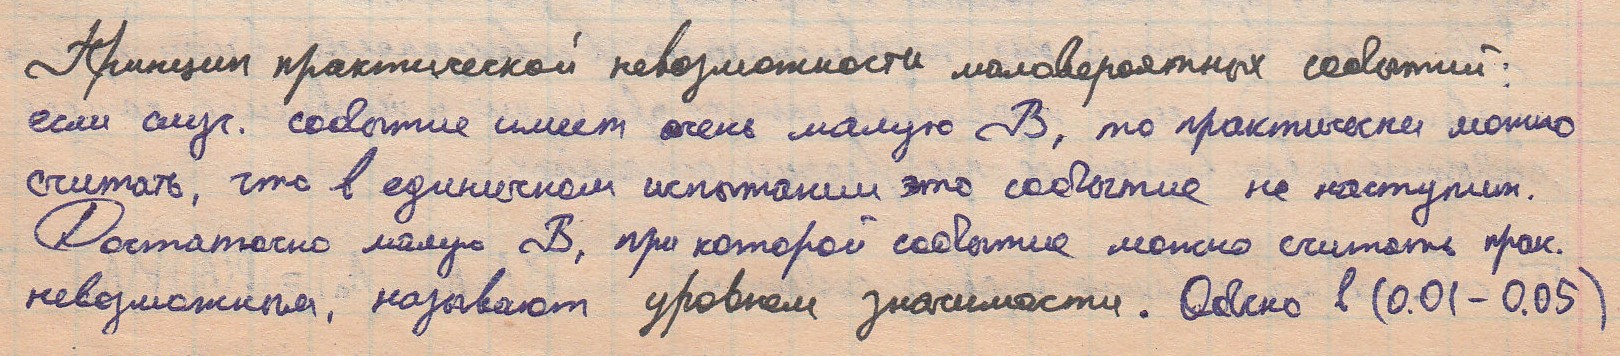 Принцип практической невозможности маловероятных событий:
если случ. событие имеет очень малую В, то практически можно
считать, что в единичном испытании это событие не наступит.
Достаточно малую В, при которой событие можно считать прак.
невозможным, называют уровнем значимости. Обычно в (0.01 - 0.05)